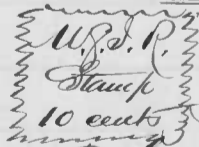 U.S.I.R.
Stamp
10 cents